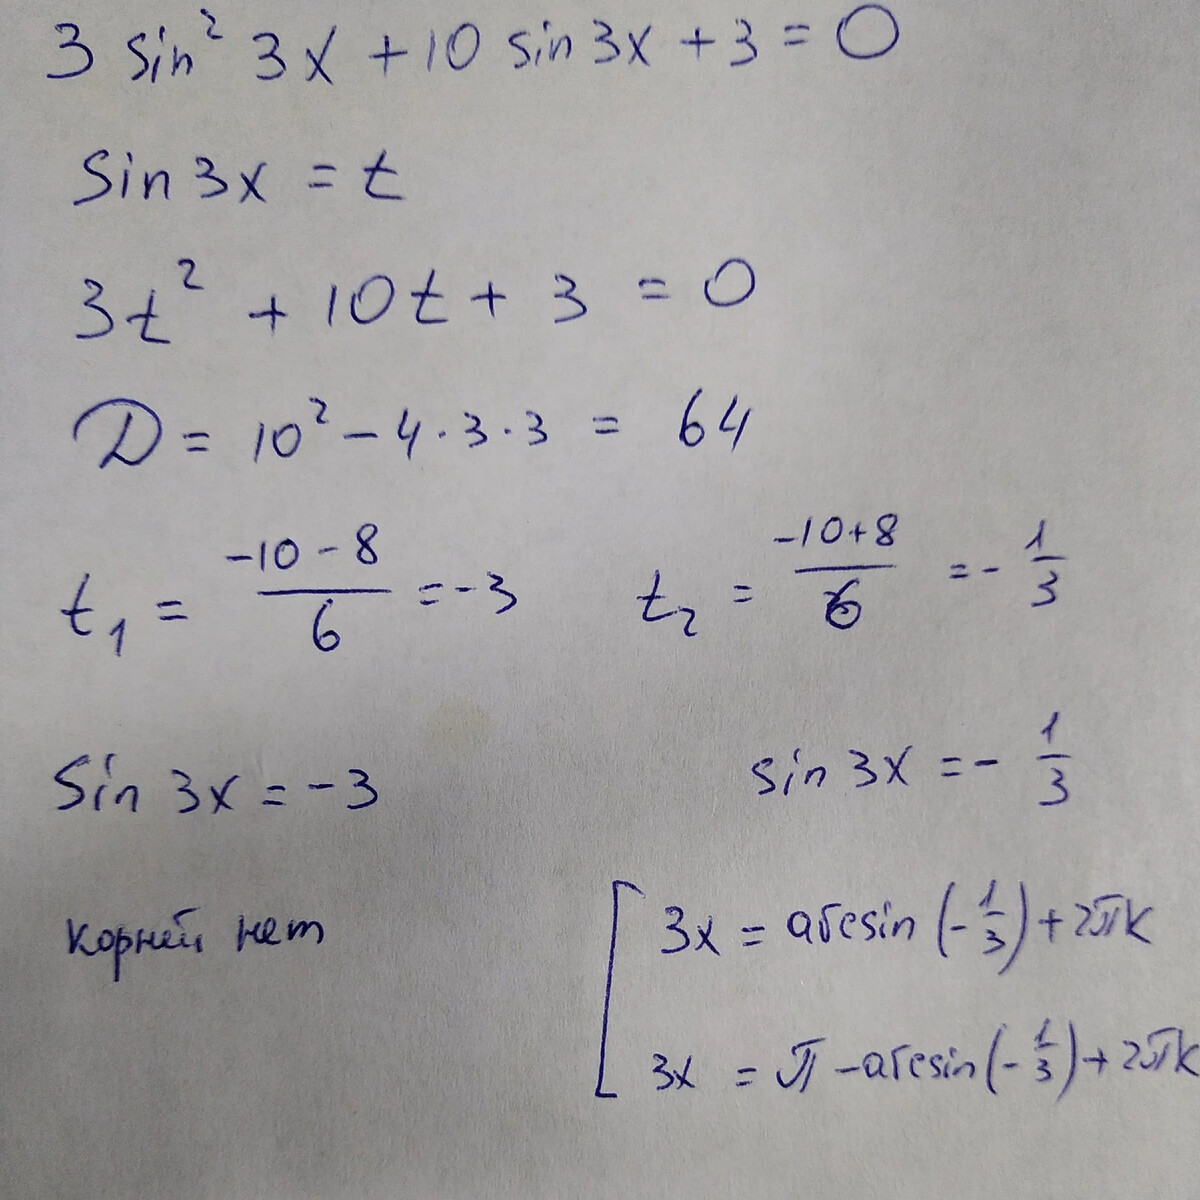 3 sin² 3x + 10 sin 3x + 3 = 0
Sin 3x = t
3t² + 10t + 3 = 0
D = 10² - 4 · 3 · 3 = 64
t₁ = (-10 - 8)/6 = -3 t₂ = (-10 + 8)/6 = -1/3
Sin 3x = -3 sin 3x = -1/3
корней нет [ 3x = arcsin (-1/3) + 2πk
3x = π - arcsin (-1/3) + 2πk